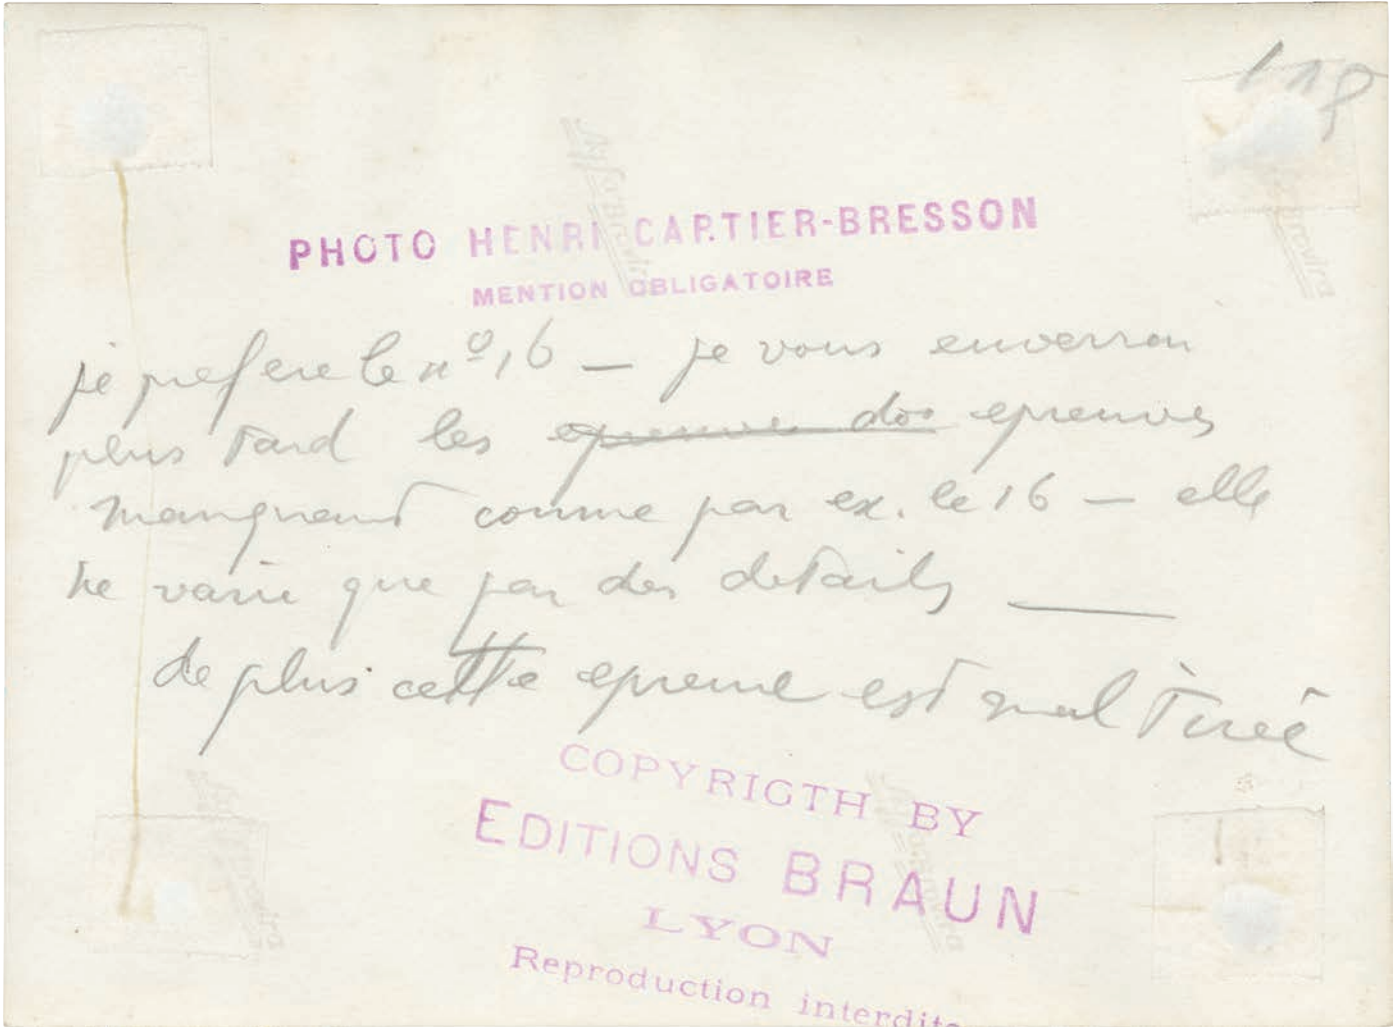 118
Agfa Brovira
Brovira
PHOTO HENRI CARTIER-BRESSON
MENTION OBLIGATOIRE
je prefere le nº 16 — je vous enverrai
plus tard les epreuves des epreuves
manquent comme par ex. le 16 — elle
ne varie que par des details —
de plus cette epreuve est mal tireé
COPYRIGTH BY
EDITIONS BRAUN
LYON
Reproduction interdite